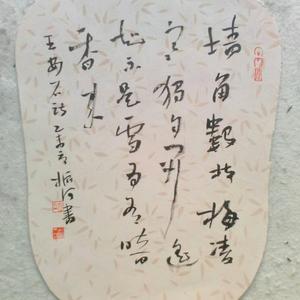 墙角数枝梅凌
寒独自开遥
知不是雪为有暗
香来
王安石诗乙未之振河书